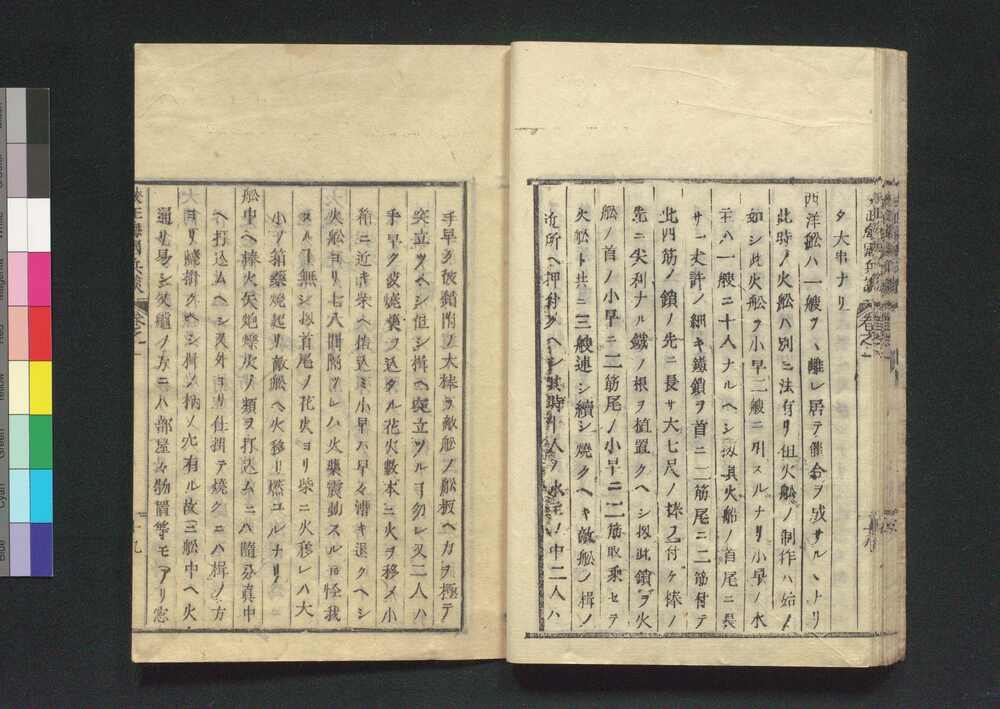 タ大事ナリ
西洋舩ハ一艘ヅヽ離レ居テ備合ヲ成サルヽナリ
此時ノ火舩ハ別ニ法有リ但火舩ノ制作ハ始ノ
如シ此火舩ヲ小早二艘ニ引スルナリ小早ノ水
主ハ一艘ニ十人ナルヘシ扨其火舩ノ首尾ニ長
サ一丈許ノ細キ鐵鎖ヲ首ニ二筋尾ニ二筋付テ
此四筋ノ鎖ノ先ニ長サ六七尺ノ棒ヲ付ケ棒ノ
先ニ尖利ナル鐵ノ根ヲ植置クヘシ扨此鎖ヲ火
舩ノ首ノ小早ニ二筋尾ノ小早ニ二筋取乗セテ
火舩ト共ニ三艘連シ續シ燒クヘキ敵舩ノ楫ノ
近所ヘ押付クヘシ其時八人ヲ水主ノ中二人ハ
手早ク彼鎖附ノ大棒ヲ敵舩ノ舩板ヘカヲ極テ
突立ツヘシ但シ楫ヘ突立ツルヿ勿レ又二人ハ
手早ク彼燒藥ヲ込タル花火數本ニ火ヲ移メ小
箱ニ近キ柴ヘ指込ミ小早ハ早々漕キ退クヘシ
火舩ヨリ七八間隔ツレハ火藥震動スル𪜈怪我
スルヿ無シ扨首尾ノ花火ヨリ柴ニ火移レハ大
小ノ箱藥燒起リ敵舩ヘ火移リ燃ユルナリ
舩中ヘ棒火矢炮烙火ノ類ヲ打込ムニハ隨分真中
ヘ打込ムヘシ又外ヨリ仕掛テ燒クニハ楫ノ方
ヨリ燒掛クヘシ楫ノ柄ノ穴有ル故三舩中ヘ火
通リ易シ又艫ノ方ニハ部屋々物置等モアリ窓